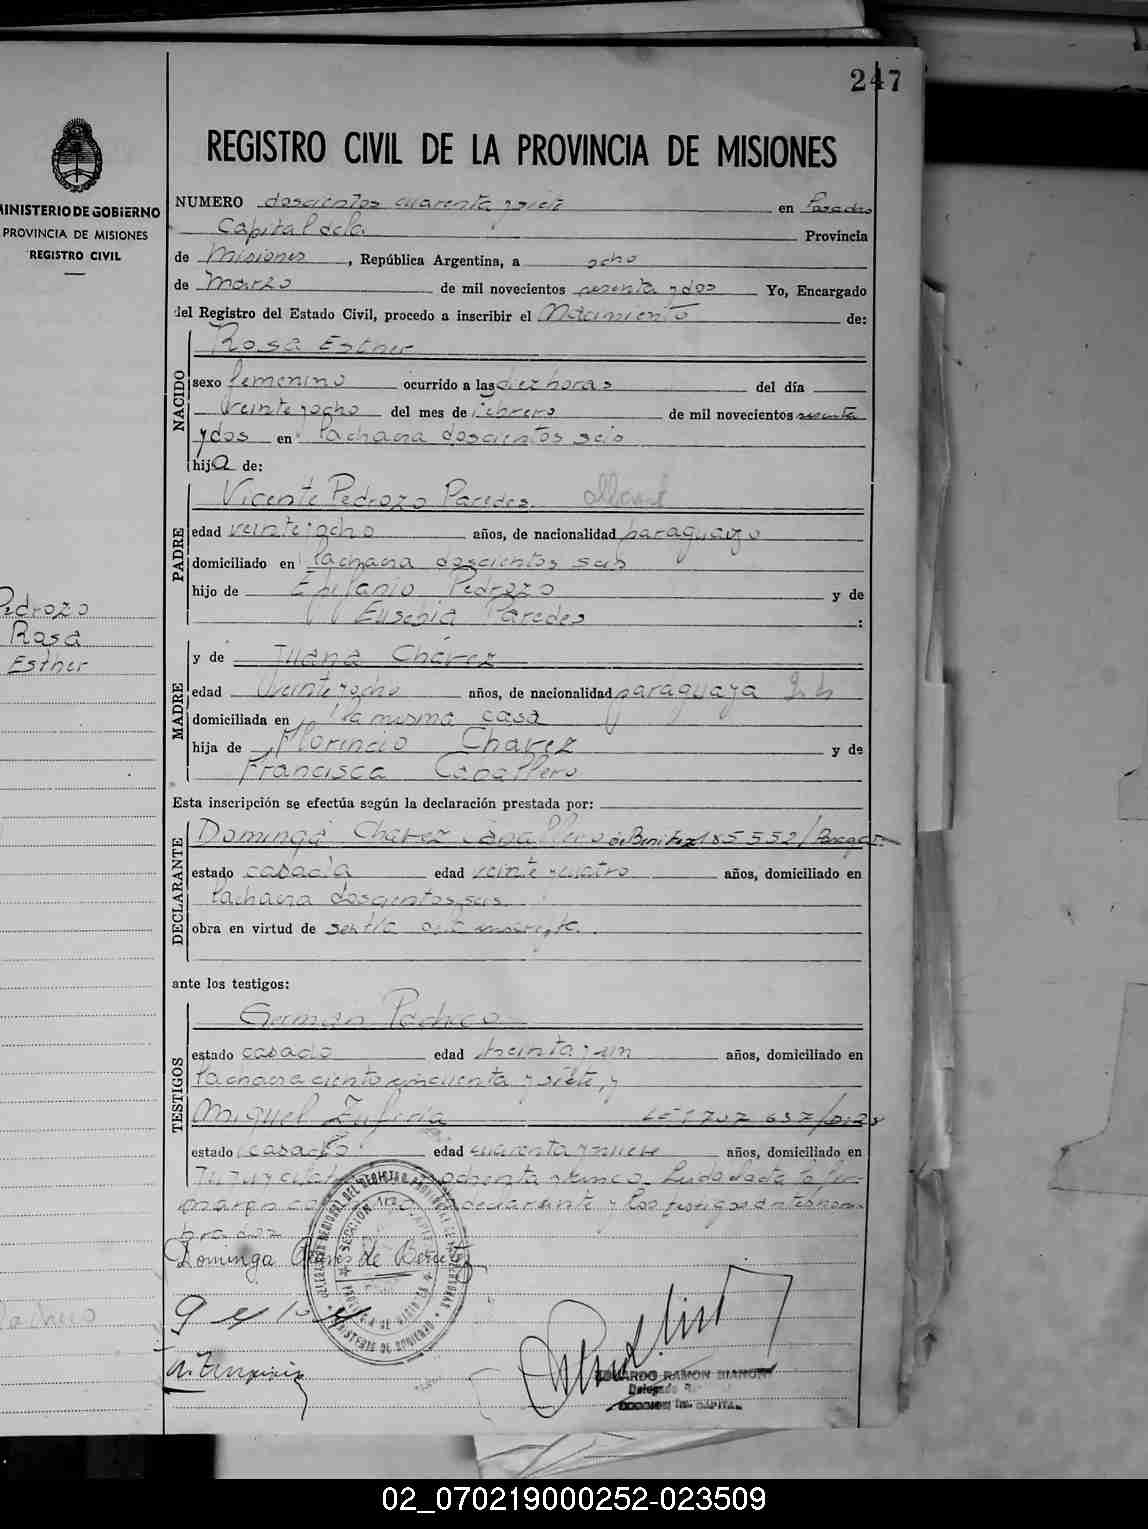 247
REGISTRO CIVIL DE LA PROVINCIA DE MISIONES
MINISTERIO DE GOBIERNO
PROVINCIA DE MISIONES
REGISTRO CIVIL
NUMERO doscientos cuarenta y siete en Posadas
Capital de la Provincia
de Misiones, República Argentina, a ocho
de Marzo de mil novecientos sesenta y dos Yo, Encargado
del Registro del Estado Civil, procedo a inscribir el Nacimiento de:
NACIDO
Rosa Esther
sexo femenino ocurrido a las diez horas del día
Veinte y ocho del mes de febrero de mil novecientos sesenta
y dos en la chacra doscientos seis
hija de:
PADRE
Vicente Pedrozo Paredes.
edad veinte y ocho años, de nacionalidad paraguayo
domiciliado en la chacra doscientos seis
hijo de Epifanio Pedrozo y de
Eusebia Paredes :
Pedrozo
Rosa
Esther
MADRE
y de Juana Chavez
edad Veinte y ocho años, de nacionalidad paraguaya
domiciliada en la misma casa
hija de Florencio Chavez y de
Francisca Caballero
Esta inscripción se efectúa según la declaración prestada por:
DECLARANTE
Dominga Chavez Caballero de Benitez
estado casada edad veinte y cuatro años, domiciliado en
la chacra doscientos seis.
obra en virtud de
ante los testigos:
TESTIGOS
German Pacheco
estado casado edad treinta y un años, domiciliado en
la chacra ciento cincuenta y siete, y
Miguel
estado casado edad cuarenta y nueve años, domiciliado en
ochenta y cinco. Leida el acta la fir-
maron declarante y los testigos antes nom-
brados
Dominga Chavez de Benitez
Pacheco
EDUARDO RAMON BIANCHI
02_070219000252-023509